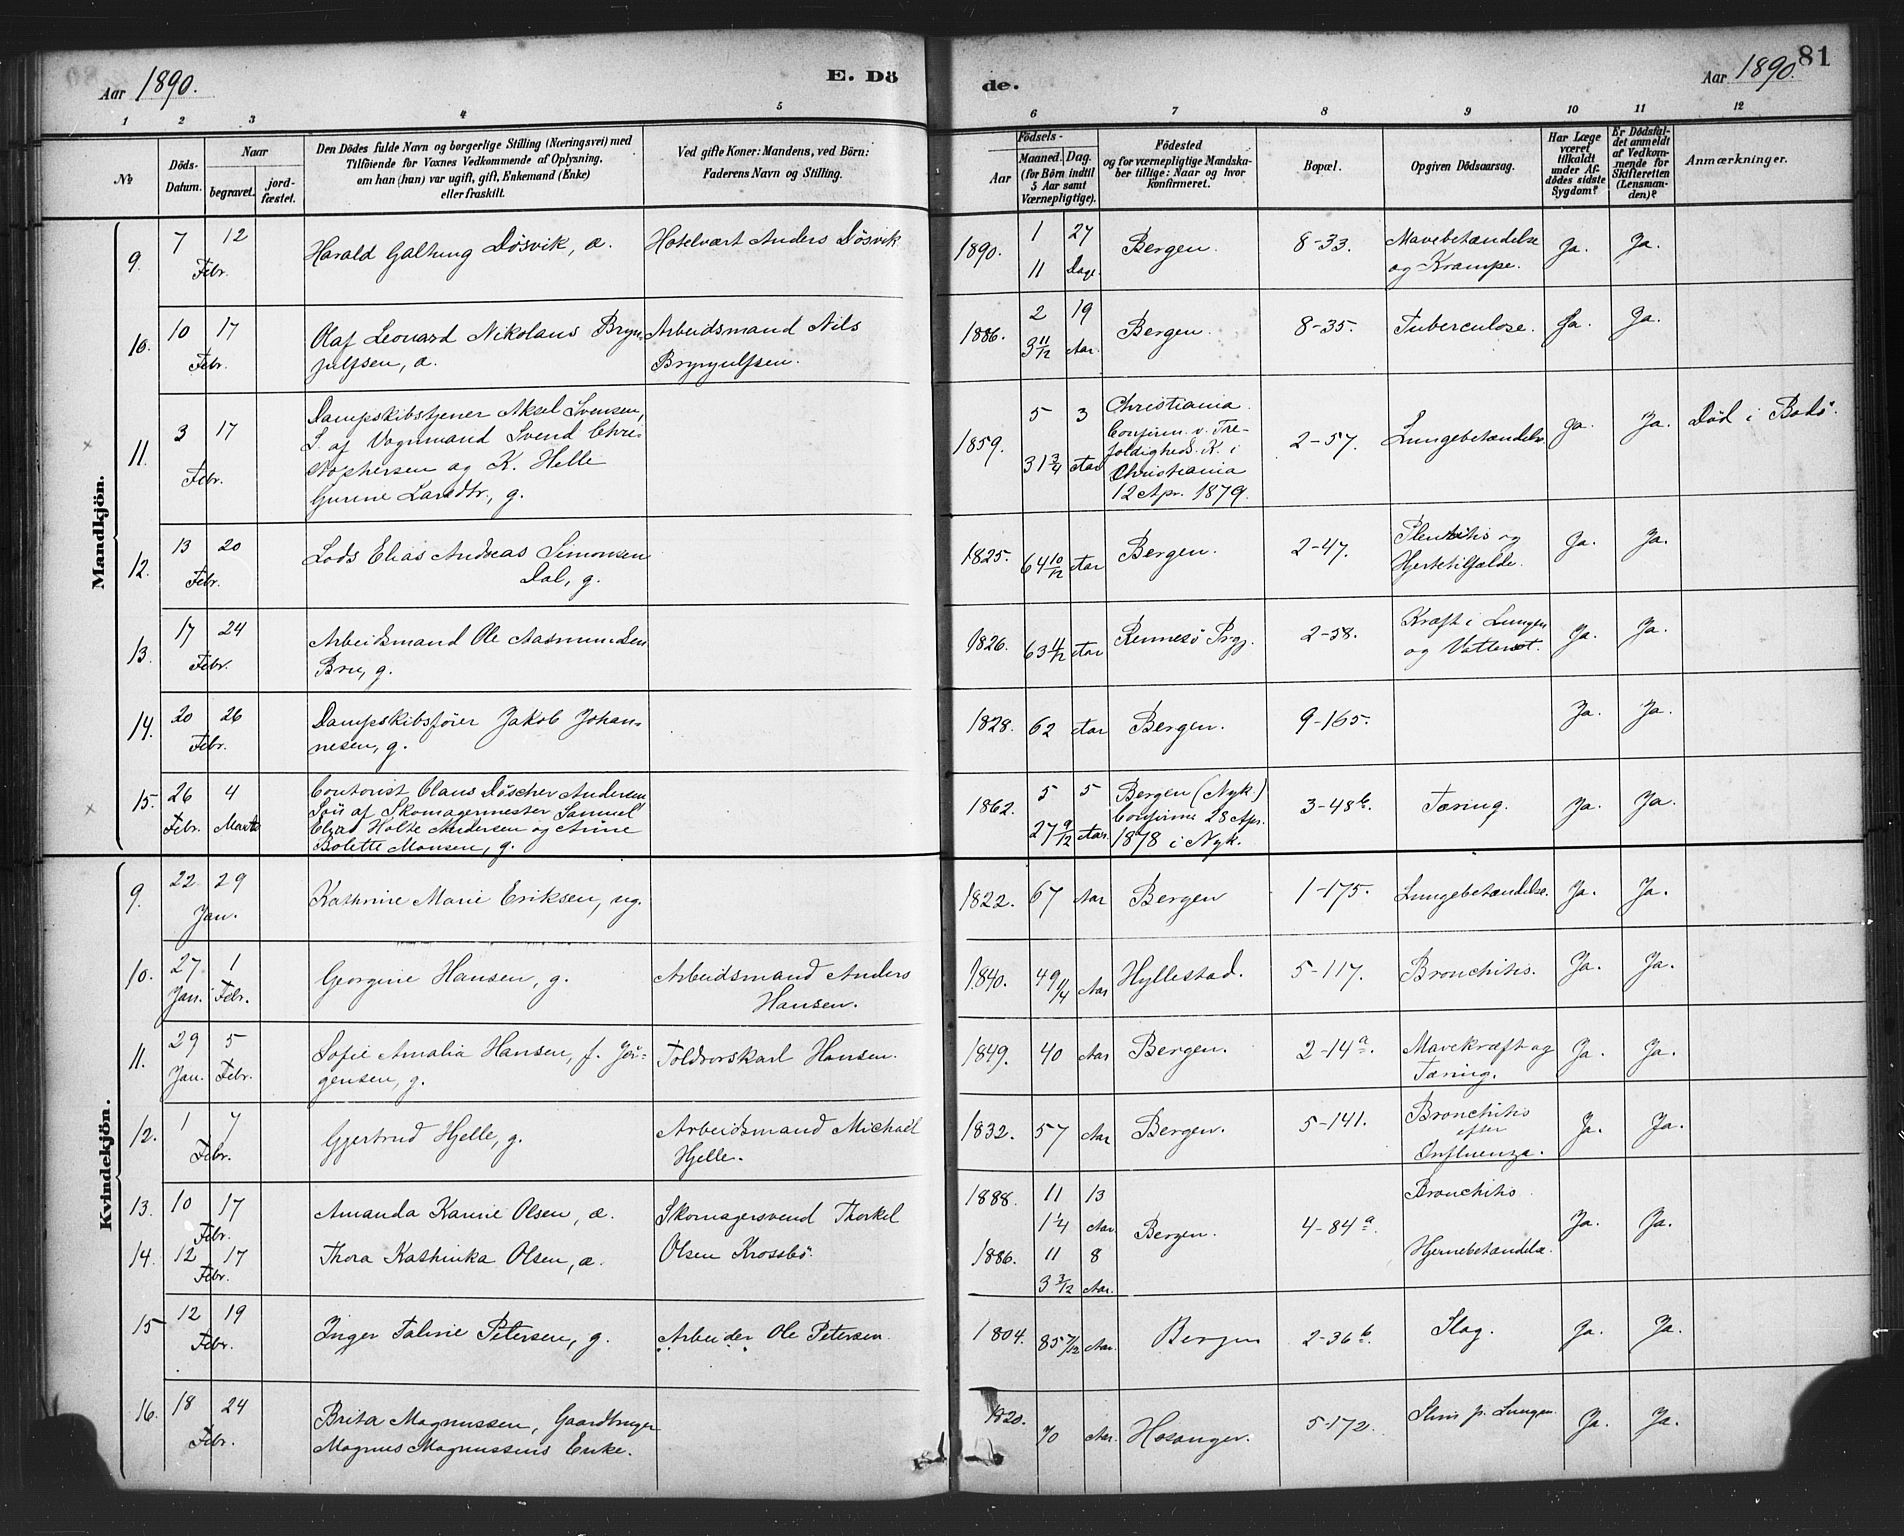 Aar 1890.
E. Dö
de.
Aar 1890.
81
1 2 3 4 5 6 7 8 9 10 11 12
No
Döds-Datum.
Naar
begravet.
jord-fæstet.
Den Dödes fulde Navn og borgerlige Stilling (Næringsvei) med
Tilföiende for Voxnes Vedkommende af Oplysning,
om han (hun) var ugift, gift, Enkemand (Enke)
eller fraskilt.
Ved gifte Koner: Mandens, ved Börn:
Faderens Navn og Stilling.
Födsels-
Aar
Maaned. Dag.
(for Börn indtil
5 Aar samt
Værnepligtige).
Födested
og for værnepligtige Mandska-
ber tillige: Naar og hvor
konfirmeret.
Bopæl.
Opgiven Dödsaarsag.
Har Læge
været
tilkaldt
under Af-
dödes sidste
Sygdom?
Er Dödsfal-
det anmeldt
af Vedkom-
mende for
Skifteretten
(Lensman-
den)?
Anmærkninger.
Mandkjön.
9. 7 12 Febr. Harald Galtung Døsvik, æ. Hotelvært Anders Døsvik 1890. 1 27 11 Dage Bergen. 8-33. Mavebetændelse og Krampe. Ja. Ja.
10. 10 17 Febr. Olaf Leonard Nikolaus Bryn-
julfsen, æ. Arbeidsmand Nils
Brynjulfsen. 1886. 2 19 3 11/12 Aar. Bergen. 8-35. Tuberculose. Ja. Ja.
11. 3 17 Febr. Dampskibstjener Aksel Svensen,
S. af Vognmand Svend Chri-
stophersen og K. Helle
Gurine Larsdtr., g. 1859. 5 3 31 3/4 Aar Christiania.
Confirm. v. Tre-
foldigheds. K. i
Christiania
12 Apr. 1879. 2-57. Lungebetændelse. Ja. Ja. Død i Bodø.
12. 13 20 Febr. Lods Elias Andreas Simonsen
Dal, g. 1825. 64 10/12 Aar Bergen. 2-47. Pleuritis og
Hjertetilfælde. Ja. Ja.
13. 17 24 Febr. Arbeidsmand Ole Aasmundsen
Bru, g. 1826. 63 4/12 Aar Rennesø Prgj. 2-58. Kræft i Lungen
og Vattersot. Ja. Ja.
14. 20 26 Febr. Dampskibsfører Jakob Johan-
nesen, g. 1828. 62 Aar Bergen. 9-165. Ja. Ja.
15. 26 Febr. 4 Marts Contorist Claus Døscher Andersen
Søn af Skomagermester Samuel
Elias Holte Andersen og Anne
Bolette Monsen, g. 1862. 5 5 27 9/12 Aar. Bergen (Nyk.)
Confirm 28 Apr.
1878 i Nyk. 3-48 b. Tæring. Ja. Ja.
Kvindekjön.
9. 22 29 Jan. Kathrine Marie Eriksen, ug. 1822. 67 Aar Bergen 1-175. Lungebetændelse. Ja. Ja.
10. 27 Jan. 1 Febr. Georgine Hansen, g. Arbeidsmand Anders
Hansen. 1840. 49 1/4 Aar Hyllestad. 5-117. Bronchitis. Ja. Ja.
11. 29 Jan. 5 Febr. Sofie Amalia Hansen, f. Jør-
gensen, g. Toldrorskarl Hansen. 1849. 40 Aar Bergen. 2-14 a. Mavekræft og
Tæring. Ja. Ja.
12. 1 7 Febr. Gjertrud Hjelle, g. Arbeidsmand Michael
Hjelle. 1832. 57 Aar Bergen. 5-141. Bronchitis
efter
Influenza. Ja. Ja.
13. 10 17 Febr. Amanda Karine Olsen, æ. Skomagersvend Thorkel 1888. 11 13 1 1/4 Aar Bergen. 4-84 a. Bronchitis Ja. Ja.
14. 12 17 Febr. Thora Kathinka Olsen, æ. Olsen Krossbø. 1886. 11 8 3 3/12 Aar. Hjernebetændelse.
15 12 19 Febr. Inger Taline Petersen, g. Arbeider Ole Petersen. 1804. 85 7/12 Aar. Bergen 2-36 b. Slag. Ja. Ja.
16. 18 24 Febr. Brita Magnussen, Gaardbruger
Magnus Magnussens Enke. 1820. 70 Aar. Hosanger. 5-172. Slim p. Lungen. Ja. Ja.